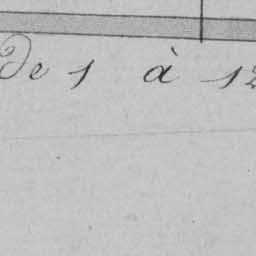 de 1 à 12